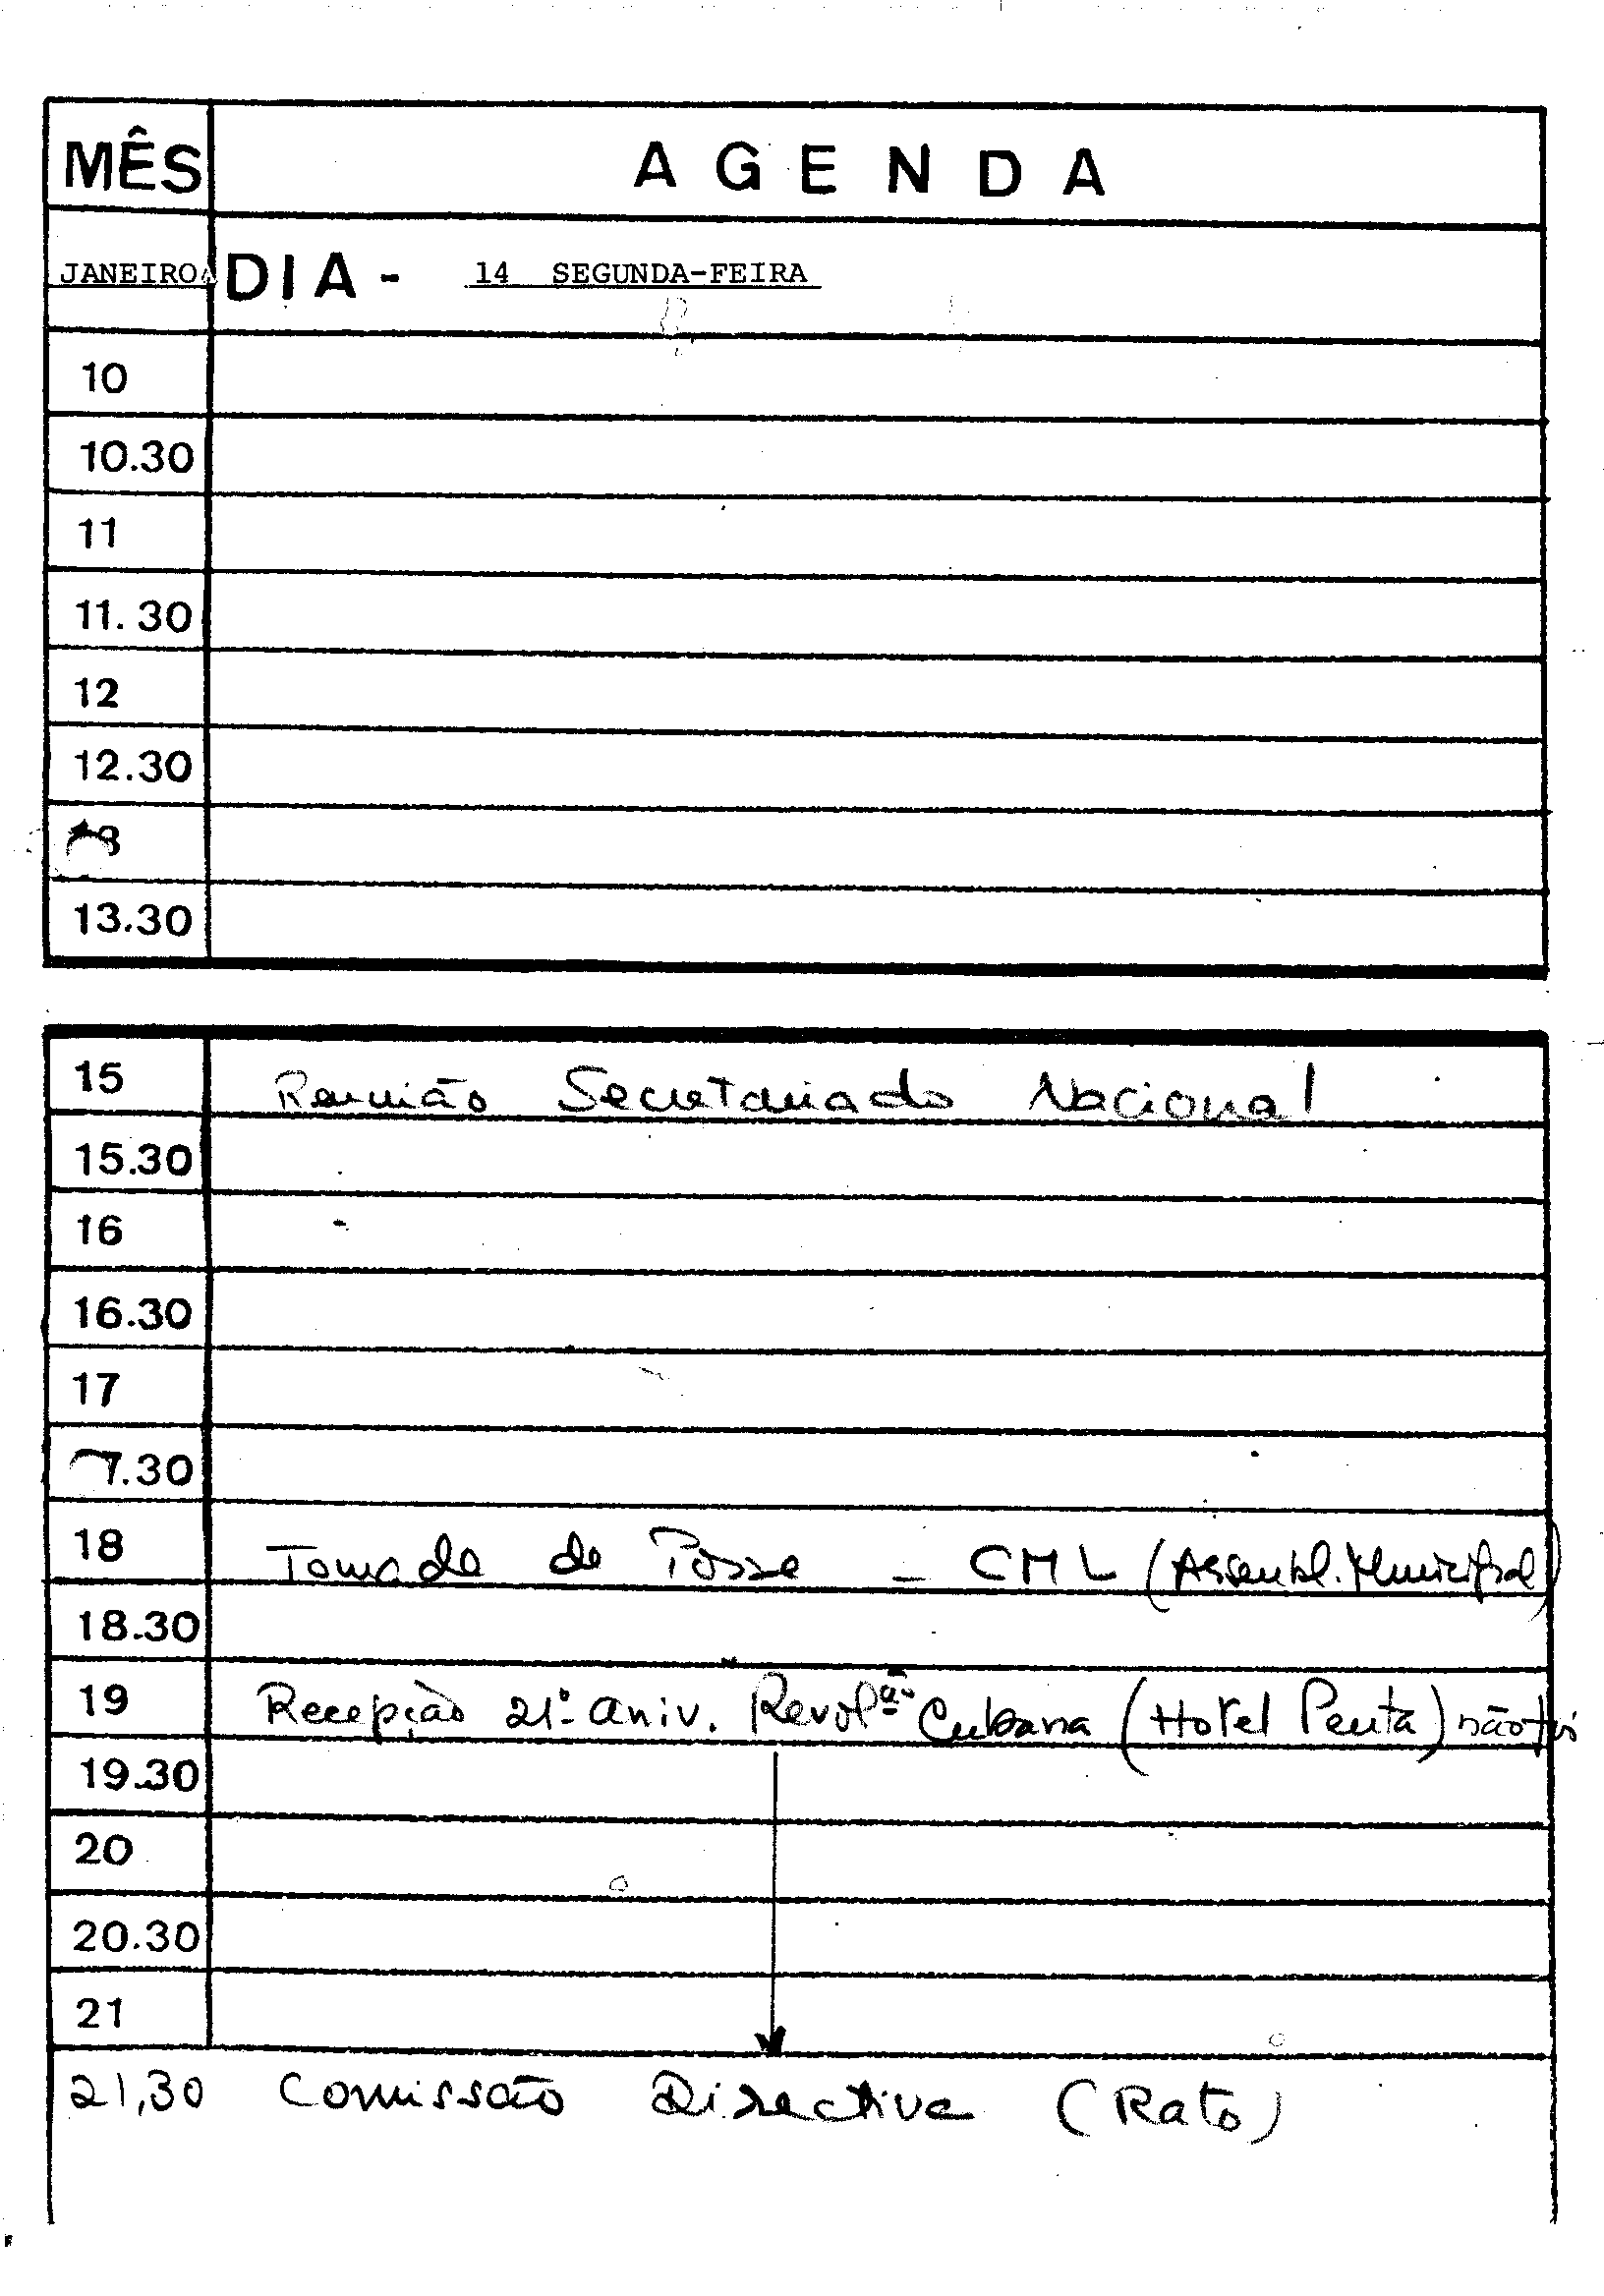 MÊS AGENDA
JANEIRO DIA - 14 SEGUNDA-FEIRA
10
10.30
11
11.30
12
12.30
13.30
15 Reunião Secretariado Nacional
15.30
16
16.30
17
7.30
18 Tomada de Posse - CML (Assembl. Municipal)
18.30
19 Recepção 21º aniv. Revolªº Cubana (Hotel Penta) não fui
19.30
20
20.30
21
21,30 Comissão Directiva (Rato)